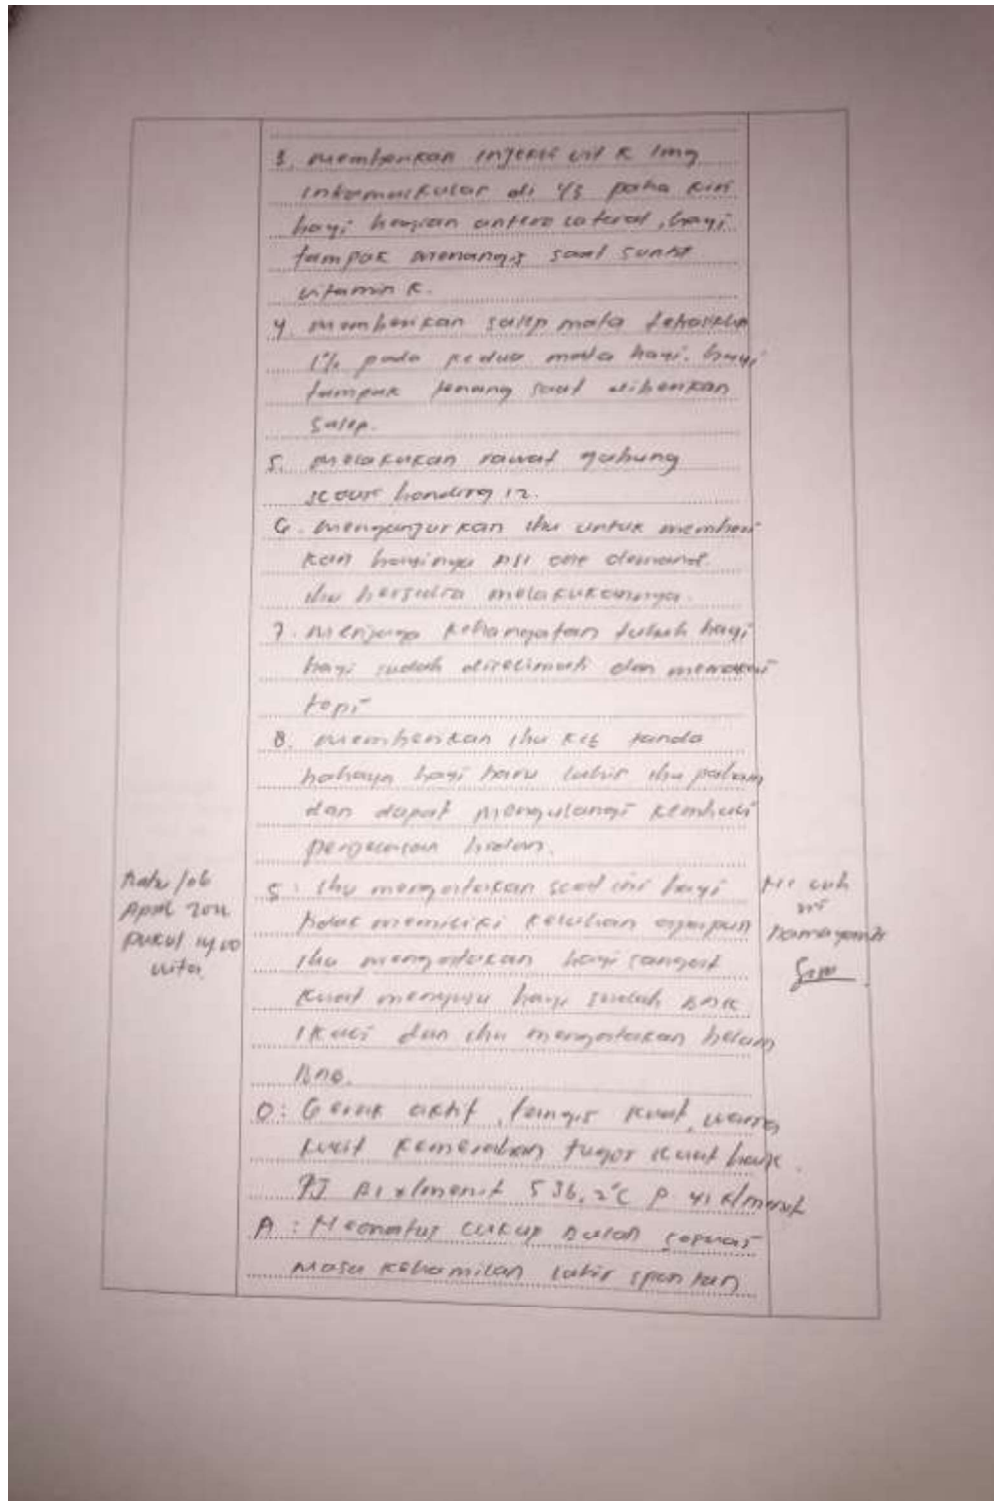 3. memberikan injeksi vit K 1mg
intramuskular di 1/3 paha kiri
bayi bagian antero lateral, bayi
tampak menangis saat suntik
vitamin K.
4. memberikan salep mata
1% pada kedua mata bayi. bayi
tampak tenang saat diberikan
salep.
5. melakukan rawat gabung
12.
6. menganjurkan ibu untuk memberi
kan bayinya ASI one demand.
ibu bersedia melakukannya.
7. menjaga kehangatan tubuh bayi
bayi sudah diselimuti dan memakai
topi
8. memberikan ibu KIE tanda
bahaya bayi baru lahir ibu paham
dan dapat mengulangi kembali
penjelasan bidan.
S : ibu mengatakan saat ini bayi
tidak memiliki keluhan apapun
ibu mengatakan bayi sangat
kuat menyusu bayi sudah BAK
1 kali dan ibu mengatakan belum
BAB.
O : Gerak aktif, tangis kuat, warna
kulit kemerahan tugor kulit baik.
x/menit S 36,2°C P 41 x/menit
A : Neonatus cukup bulan sesuai
masa kehamilan lahir spontan
Rabu /06
April
pukul 14.00
wita